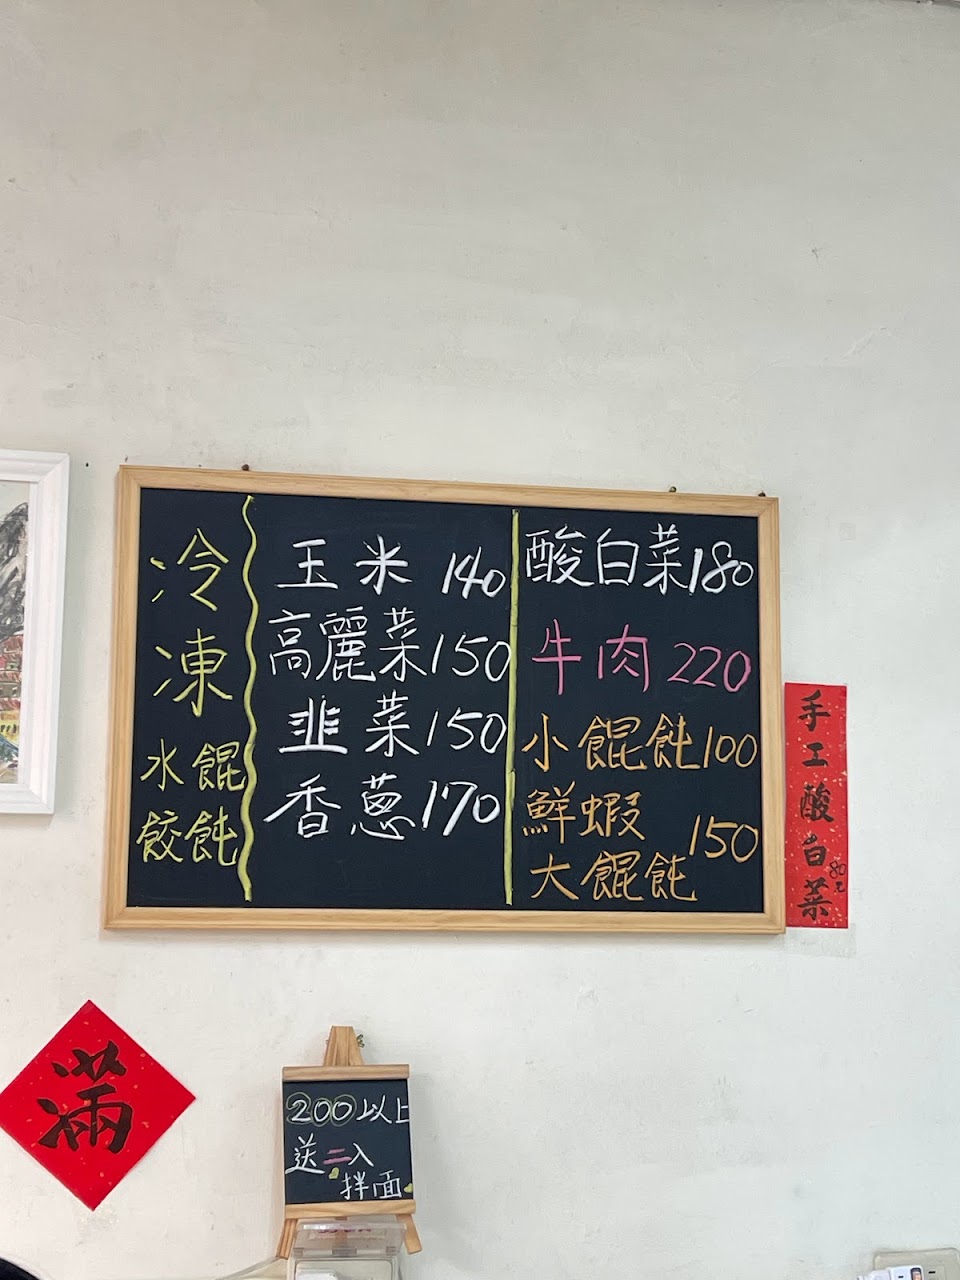 冷凍
水餃
餛飩
玉米 140
高麗菜 150
韭菜 150
香蔥 170
酸白菜 180
牛肉 220
小餛飩 100
鮮蝦
大餛飩 150
手工酸白菜
80元
滿
200以上
送二入
拌面